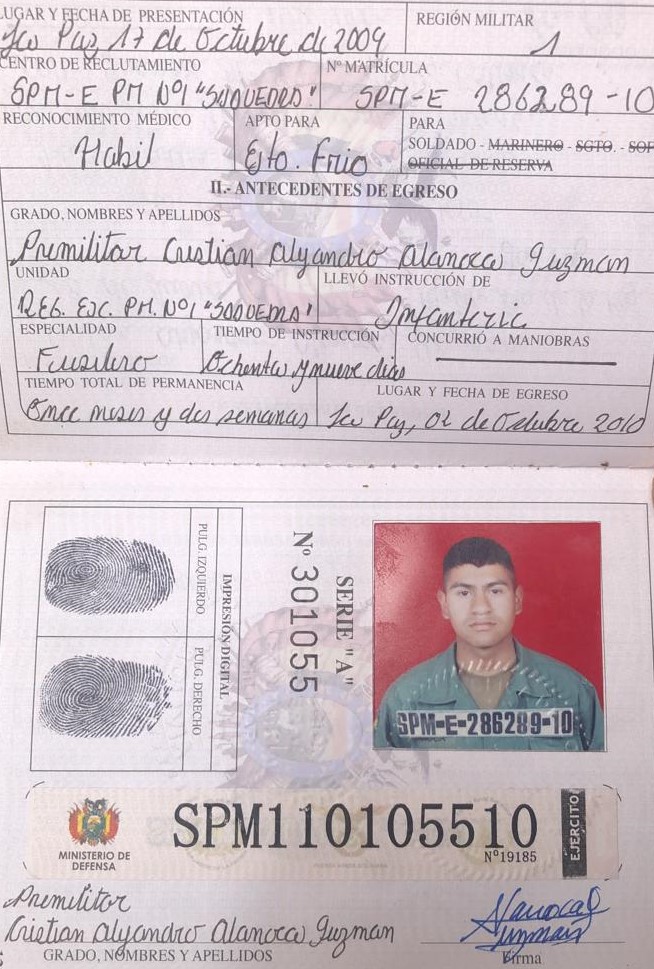 LUGAR Y FECHA DE PRESENTACIÓN
La Paz, 17 de Octubre de 2009
REGIÓN MILITAR
1
CENTRO DE RECLUTAMIENTO
SPM-E PM Nº1 "SAAVEDRA"
Nº MATRÍCULA
SPM-E 286289-10
RECONOCIMIENTO MÉDICO
Habil
APTO PARA
Ejto. Frio
PARA
SOLDADO - MARINERO - SGTO. - SOF
OFICIAL DE RESERVA
II.- ANTECEDENTES DE EGRESO
GRADO, NOMBRES Y APELLIDOS
Premilitar Cristian Alejandro Alanoca Guzman
UNIDAD
REG. ESC. PM. Nº1 "SAAVEDRA"
LLEVÓ INSTRUCCIÓN DE
Infanteria
ESPECIALIDAD
Fusilero
TIEMPO DE INSTRUCCIÓN
Ochenta y nueve dias
CONCURRIÓ A MANIOBRAS
TIEMPO TOTAL DE PERMANENCIA
Once meses y dos semanas
LUGAR Y FECHA DE EGRESO
La Paz, 02 de Octubre 2010
PULG. IZQUIERDO
PULG. DERECHO
IMPRESIÓN DIGITAL
Nº 301055
SERIE "A"
SPM-E-286289-10
MINISTERIO DE
DEFENSA
SPM110105510
Nº19185
EJERCITO
Premilitar
Cristian Alejandro Alanoca Guzman
GRADO, NOMBRES Y APELLIDOS
Alanoca G
Guzman
Firma